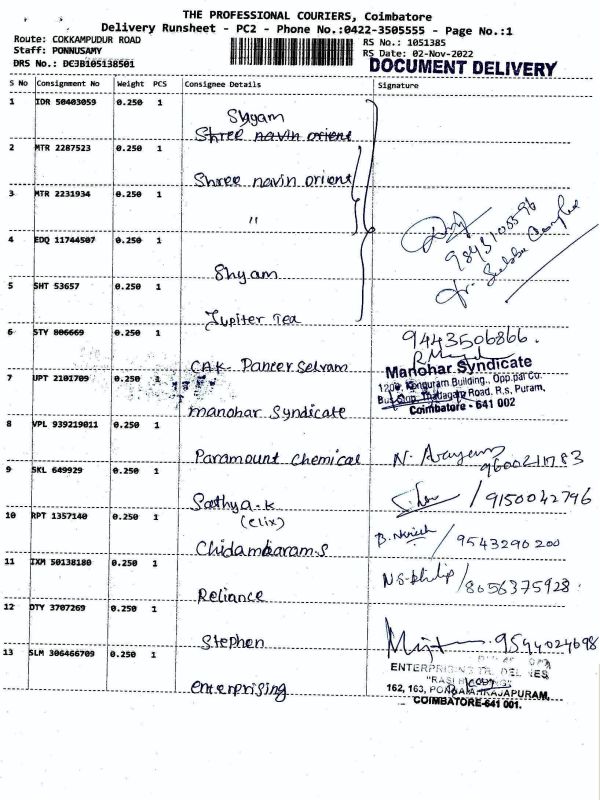 THE PROFESSIONAL COURIERS, Coimbatore
Delivery Runsheet - PC2 - Phone No.:0422-3505555 - Page No.:1
Route: COKKAMPUDUR ROAD
RS No.: 1051385
Staff: PONNUSAMY
RS Date: 02-Nov-2022
DRS No.: DC3B105138501
DOCUMENT DELIVERY
S No Consignment No Weight PCS Consignee Details Signature
1 IDR 50403059 0.250 1
Shyam
Shree navin orient
2 MTR 2287523 0.250 1
Shree navin orient
3 MTR 2231934 0.250 1
"
9843105596
4 EDQ 11744507 0.250 1
Shyam
5 SHT 53657 0.250 1
Jupiter Tea
6 STY 806669 0.250 1
9443506866.
C.A.K. Paneer Selvam
Manohar Syndicate
7 UPT 2101709 0.250
Building., Opp.par Co.
Bus Stop, Thadagam Road, R.s, Puram,
Coimbatore - 641 002
manohar Syndicate
8 VPL 939219011 0.250 1
Paramount chemical
9600211783
9 SKL 649929 0.250 1
Sathya.k / 9150042796
(Clix)
10 RPT 1357140 0.250 1
Chidambaram.s / 9543290200
11 IXM 50138180 0.250 1
NS.philip / 8056375928.
Reliance
12 DTY 3707269 0.250 1
Stephen
9544024698
13 SLM 306466709 0.250 1
ENTERPRISING
162, 163,
COIMBATORE-641 001.
enterprising